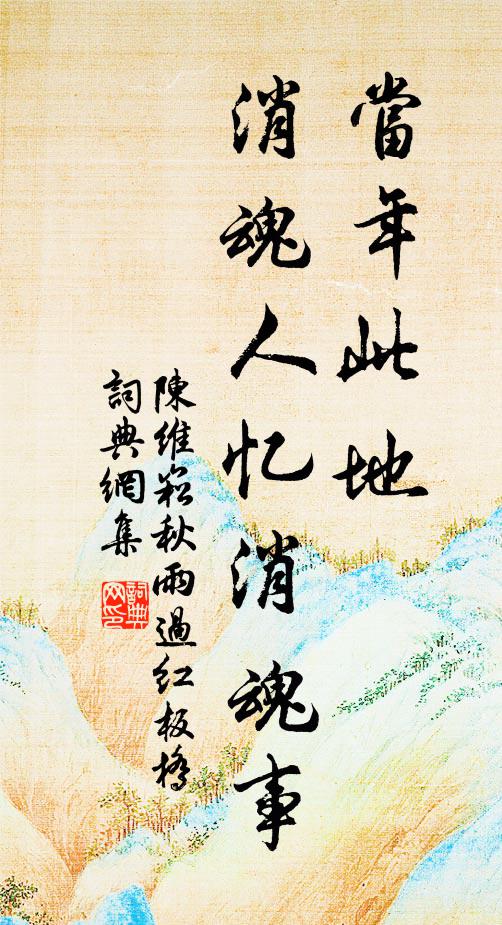 當年此地
消魂人忆消魂事
陳維崧秋雨過紅板橋
詞典網集
詞典
网印